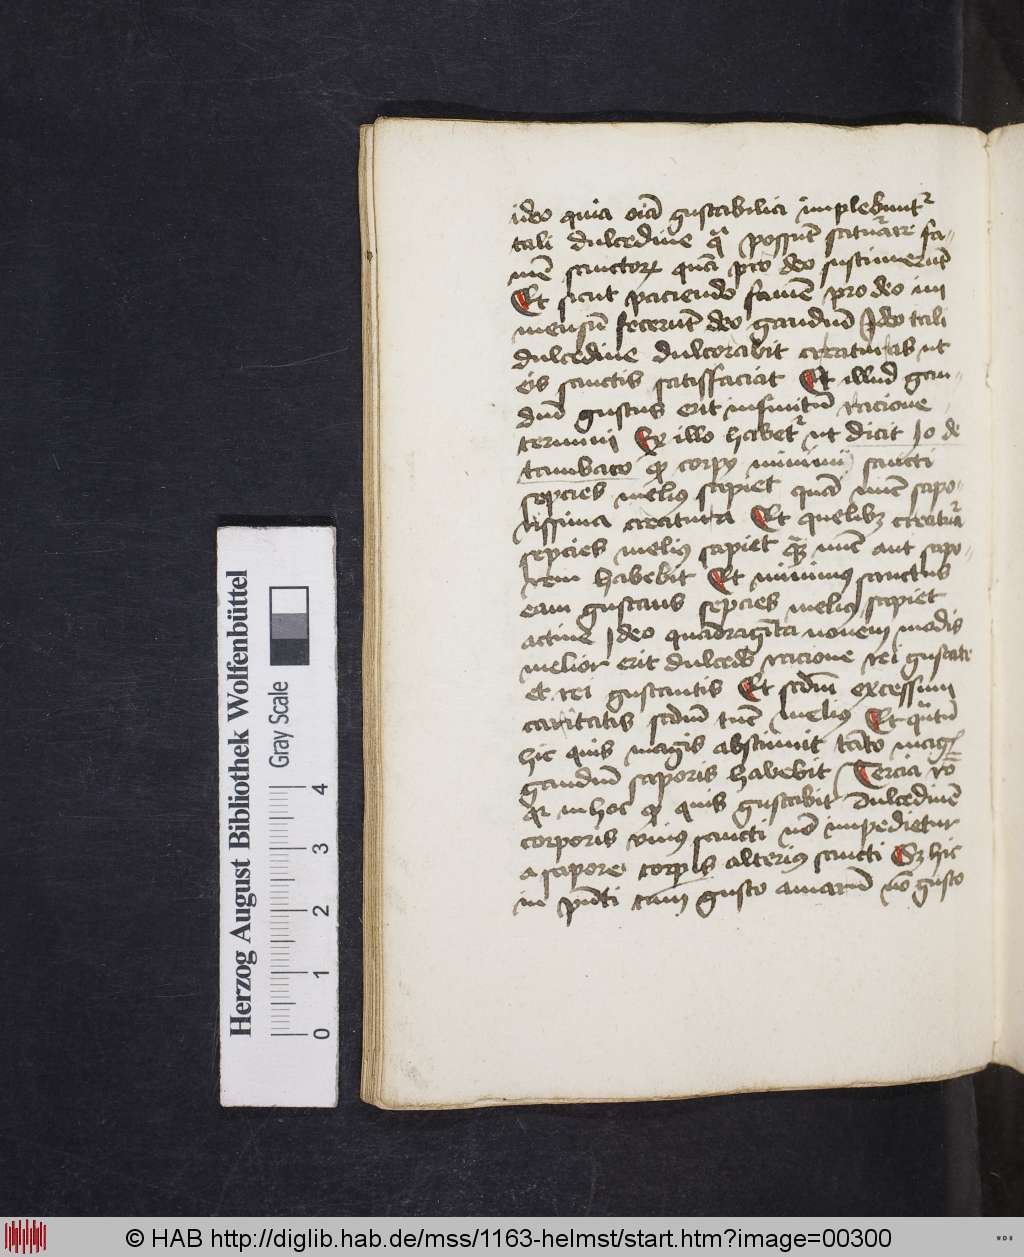 ideo quia oīa gustabilia implebunt᷑
tali dulcedine possūt saturare fa-
mē sanctoꝝ quā pro deo sustinuerūt
Et sicut paciendo famē pro deo in
mensū fecerūt deo gaudiū Ideo tali
dulcedine dulcorabit creaturas ut
eis sanctis satisfaciat Et illud gau-
diū gustus erit infinitū racione
termini Ex illo habet᷑ ut dicit Jo de
tambaco corpꝯ minimi sancti
sepcies meliꝯ sapiet quā nūc sapo-
rissima creatura Et quelibꝫ creatura
sepcies meliꝯ sapiet nūc aut sapo-
rem habebit Et minimꝯ sanctus
eam gustans sepcies meliꝯ sapiet
actiue Ideo quadragīta nouem modis
melior erit dulcedo racione rei gustate
et rei gustantis Et scdm excessum
caritatis scdm tūc meliꝯ Et qūtū
hic quis magis abstinuit tāto magꝭ
gaudiū saporis habebit Tercia rō
in hoc quis gustabit dulcedinē
corporis vniꝯ sancti nō impedietur
a sapore corpis alteriꝯ sancti Sꝫ hic
in pn̄ti cum gusto amarū nō gusto
Herzog August Bibliothek Wolfenbüttel
Gray Scale
0 1 2 3 4
© HAB http://diglib.hab.de/mss/1163-helmst/start.htm?image=00300